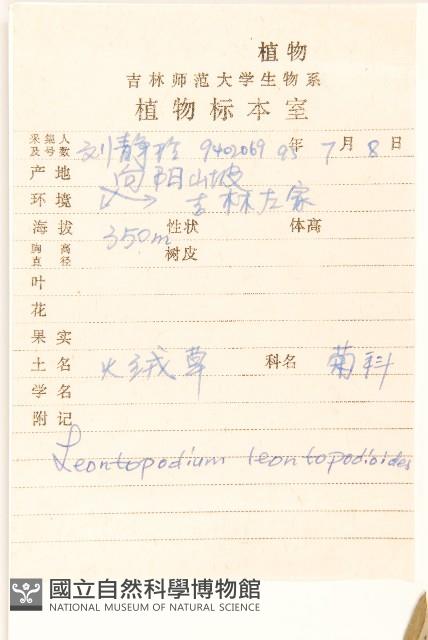 植物
吉林师范大学生物系
植物标本室
采集人及号数 刘静玲 9402069 95年7月8日
产地 向阳山坡
环境 吉林左家
海拔 350m 性状 体高
胸高直径 树皮
叶
花
果实
土名 火绒草 科名 菊科
学名
附记
Leontopodium leontopodioides
國立自然科學博物館
NATIONAL MUSEUM OF NATURAL SCIENCE